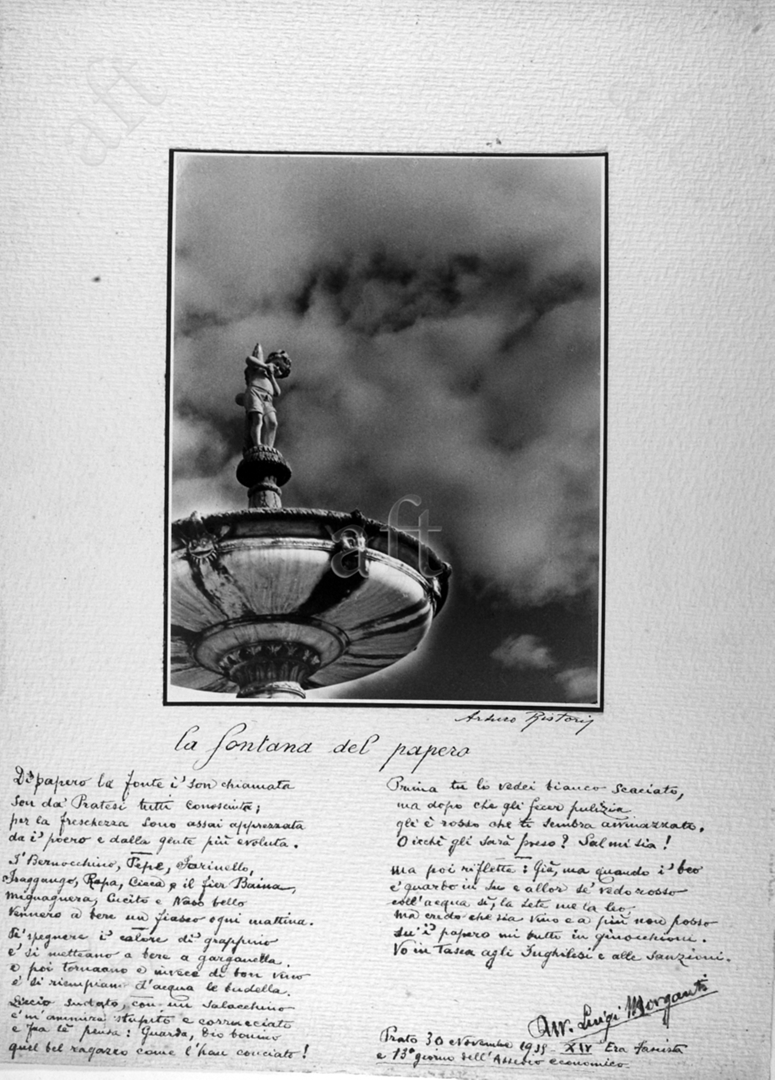 aft
aft
Arturo Ristori
la fontana del papero
Di' papero la fonte i' son chiamata
son da' Pratesi tutti conosciuta;
per la freschezza sono assai apprezzata
da i' poero e dalla gente più evoluta.
I' Bernocchino, Pepe, Farinello,
Rapa, Ciaca e il fier Baina,
Mignagnera, Cucito e Naso bello
vennero a bere un fiasco ogni mattina.
Pe' spegnere i' calore di' grappino
e' si metteano a bere a garganella.
e poi tornaano e invece di bon vino
e' si riempian d'acqua le budella.
sudato, con un salacchino
e' m'ammira stupito e corrucciato
e fra sè pensa: Guarda, Dio bonino
quel bel ragazzo come l'han conciato!
Prima tu lo vedei bianco scaciato,
ma dopo che gli fecer pulizia
gli è rosso che ti sembra avvinazzato.
O icchè gli sarà preso? Salmisia!
Ma poi riflette: Già, ma quando i' beo
e' guardo in su e allor se' vedo rosso
coll'acqua sì la sete me la leo
ma credo che sia vino e a più non posso
su' i' papero mi butto in ginocchioni.
Vo in tasca agli Inghilesi e alle sanzioni.
Avv. Luigi Morganti
Prato 30 Novembre 1935 XIV Era Fascista
e 13° giorno dell'Assedio economico